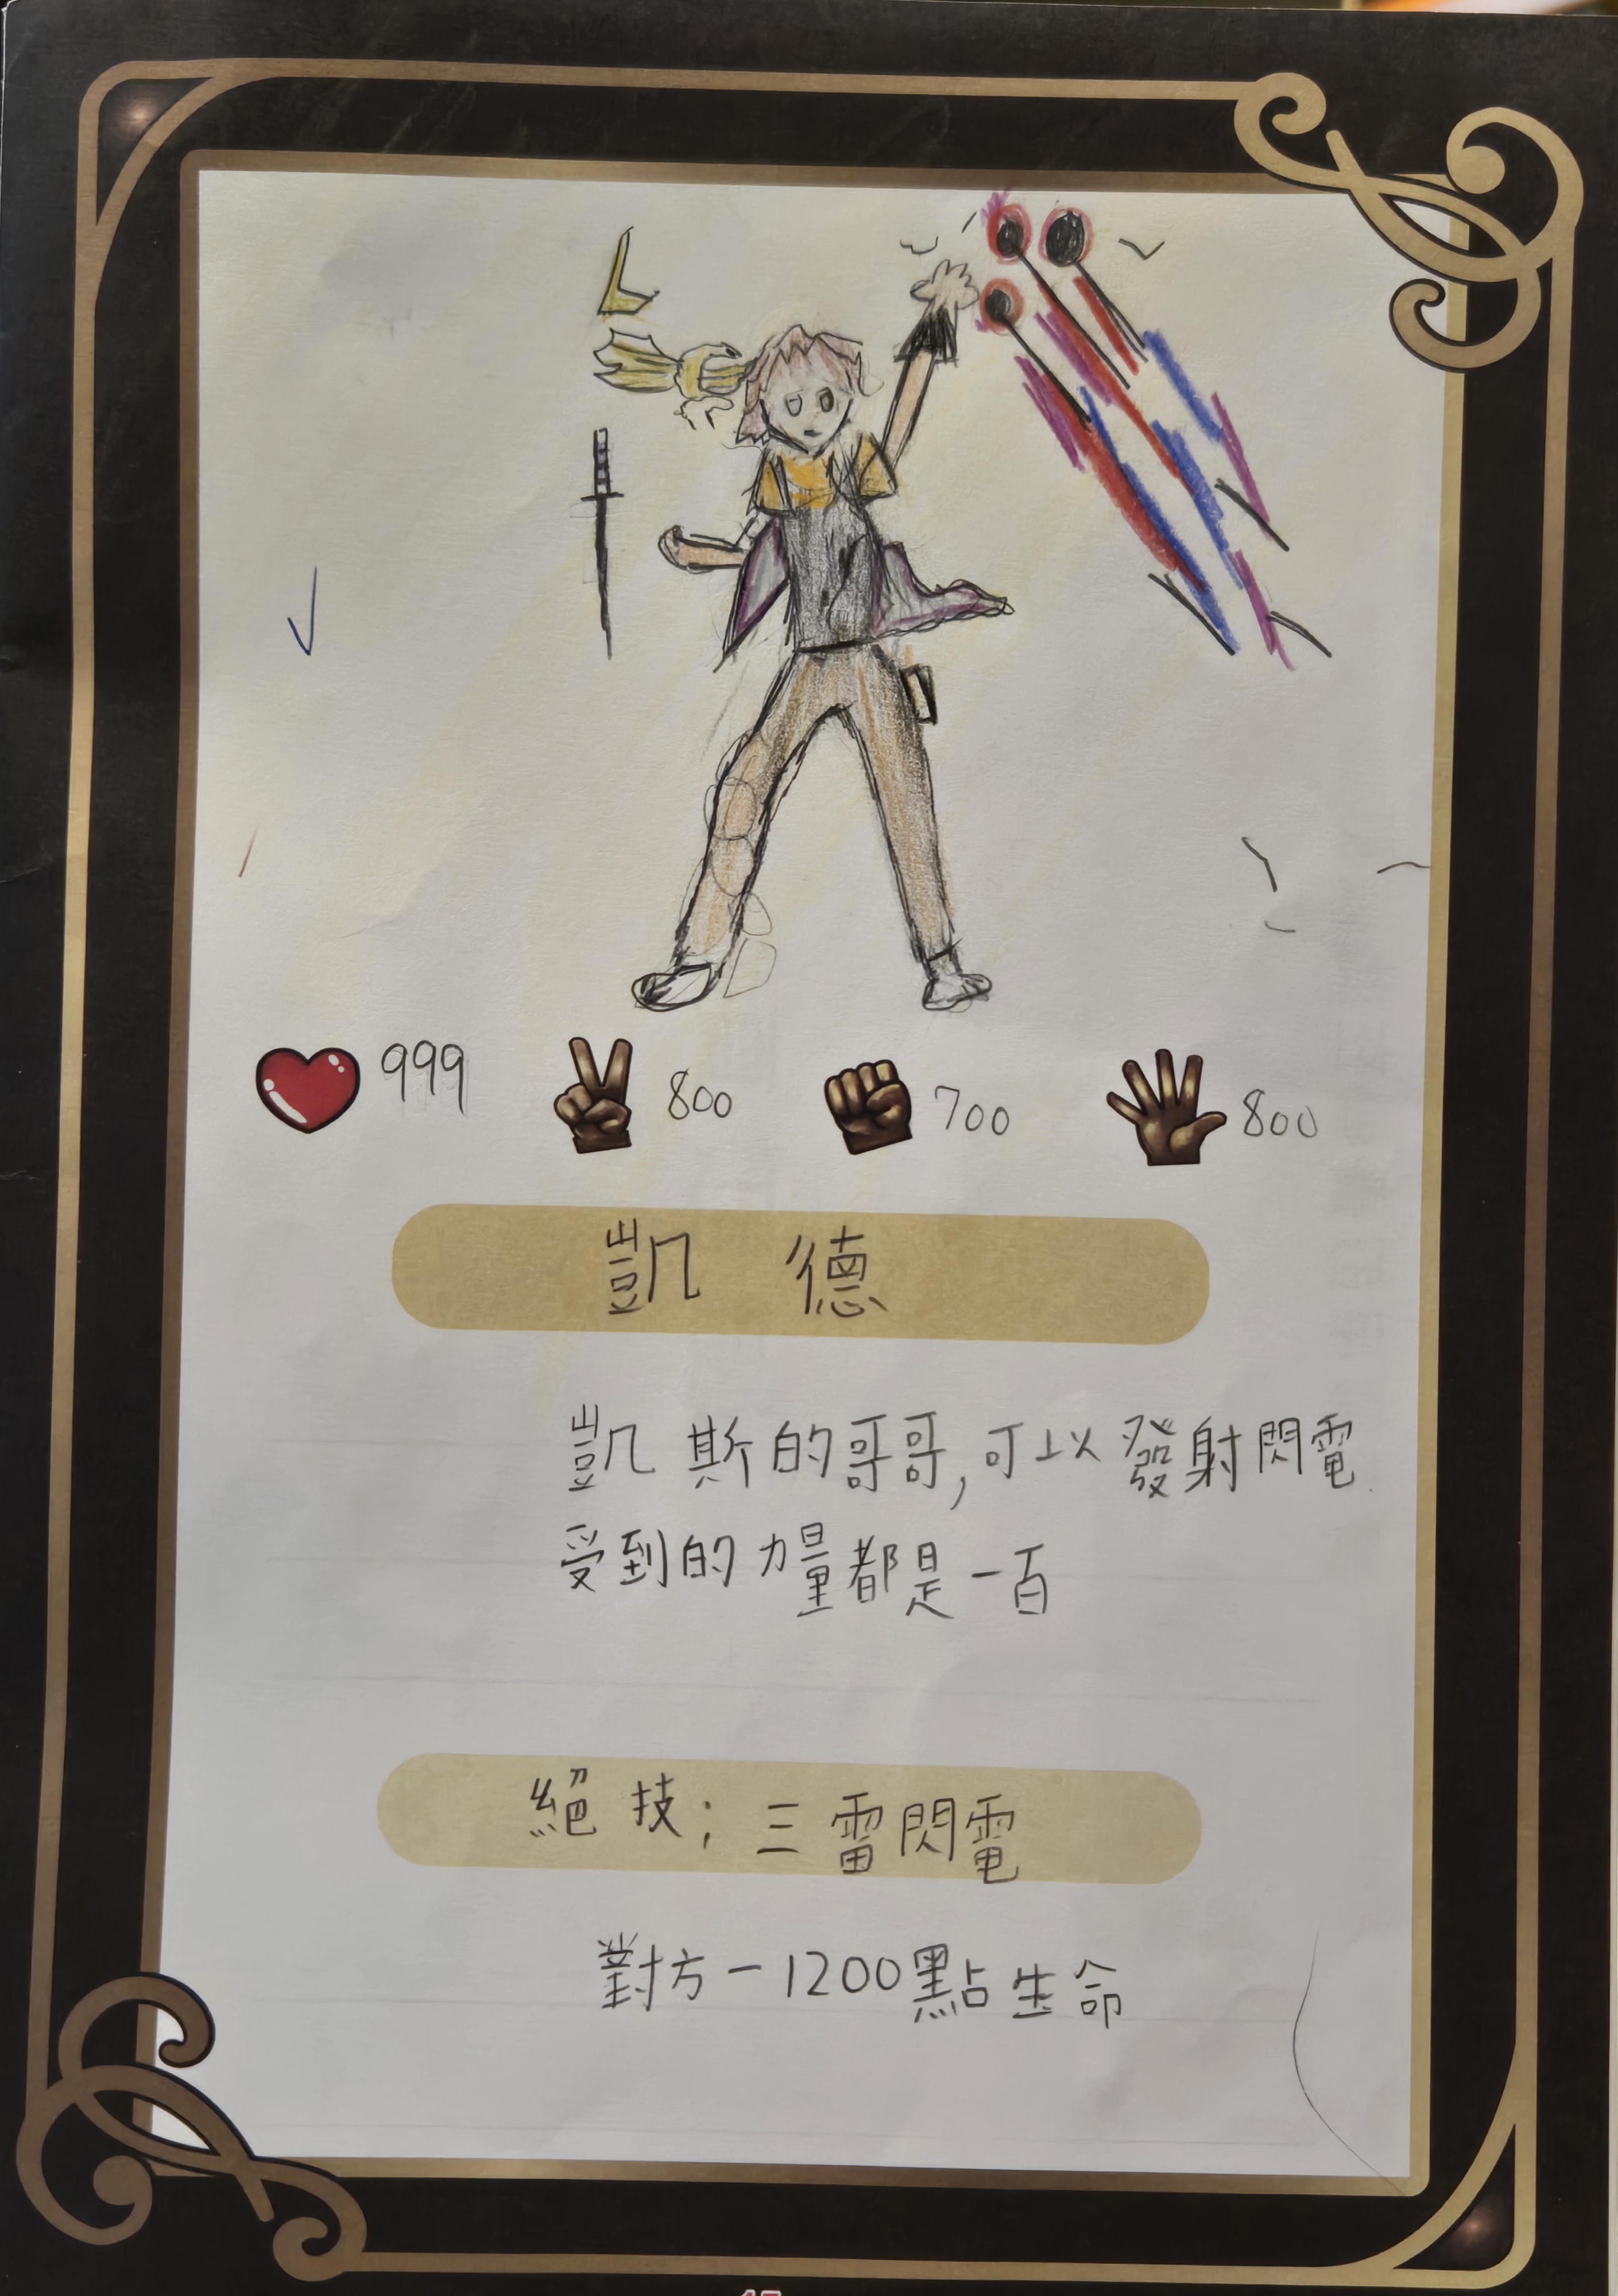 999 800 700 800
凱 德
凱斯的哥哥,可以發射閃電
受到的力量都是一百
絕技；三雷閃電
對方-1200點生命